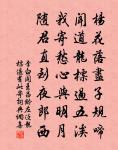 楊花落盡子規啼
聞道龍標過五溪
我寄愁心與明月
隨君直到夜郎西
李白聞王昌齡左遷龍
標遙有此寄